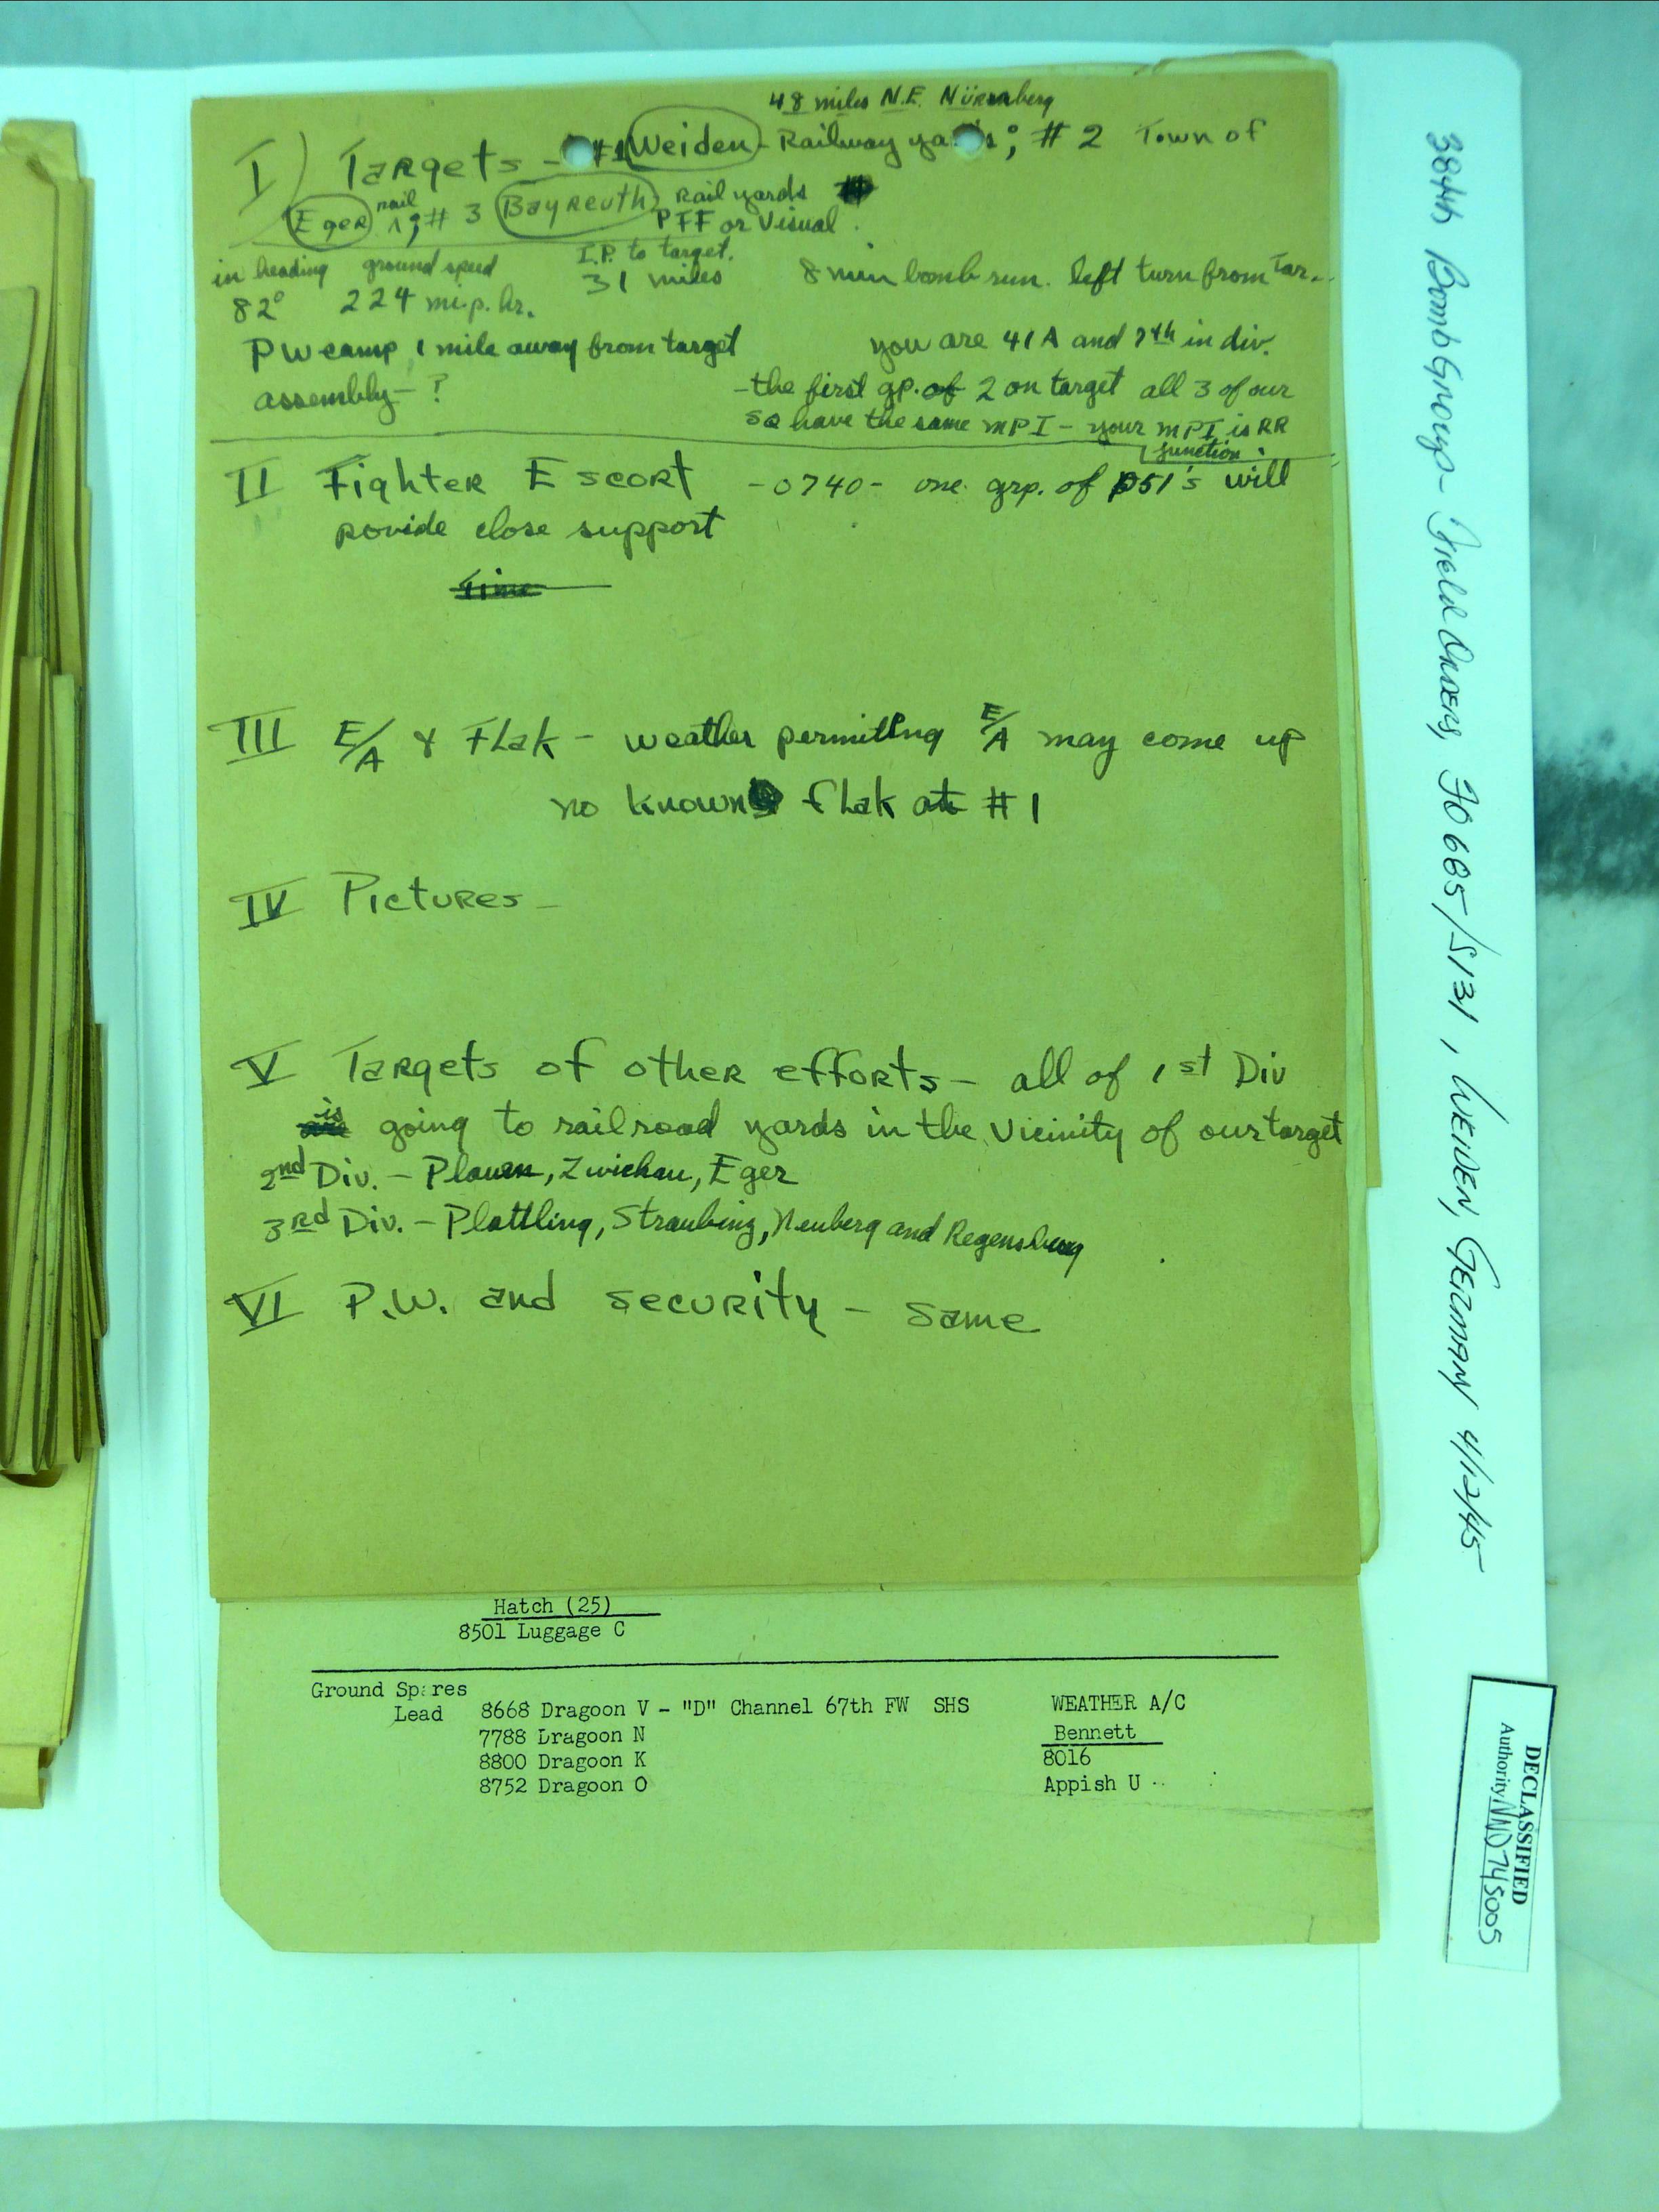 48 miles N.E. Nürnberg
I) Targets - #1 Weiden - Railway yards; #2 Town of
Eger rail; #3 Bayreuth Rail yards
PFF or Visual.
in heading ground speed I.P. to target.
82° 224 mi.p.hr. 31 miles 8 min bomb run. left turn from Tar..
PW camp 1 mile away from target you are 41A and 7th in div.
assembly - ? - the first gp. of 2 on target all 3 of our
sq have the same MPI - your MPI is RR
junction.
II Fighter Escort - 0740 - one grp. of P51's will
povide close support
Time
III E/A & Flak - weather permitting E/A may come up
no known flak at #1
IV Pictures -
V Targets of other efforts - all of 1st Div
is going to railroad yards in the vicinity of our target
2nd Div. - Plauen, Zwickau, Eger
3rd Div. - Plattling, Straubing, Neuberg and Regensburg
VI P.W. and security - same
Hatch (25)
8501 Luggage C
Ground Spares
Lead 8668 Dragoon V - "D" Channel 67th FW SHS WEATHER A/C
7788 Dragoon N Bennett
8800 Dragoon K 8016
8752 Dragoon O Appish U
384th Bomb Group - Field Orders, FO 685/S131, WEIDEN, GERMANY 4/12/45
DECLASSIFIED
Authority NND 745005